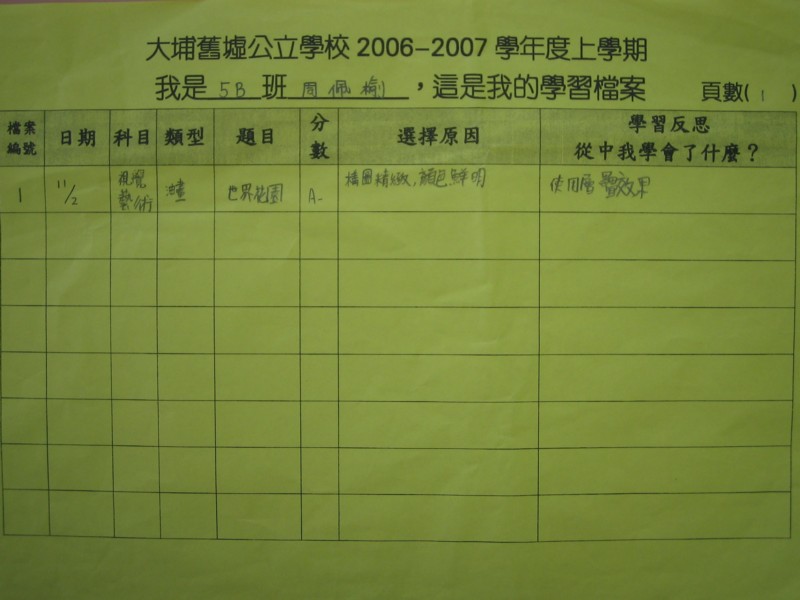 大埔舊墟公立學校 2006–2007 學年度上學期
我是 5B 班 周佩榆 ，這是我的學習檔案 頁數( 1 )
檔案編號 日期 科目 類型 題目 分數 選擇原因 學習反思 從中我學會了什麼？
1 11/2 視覺藝術 世界花園 A- 構圖精緻,顏色鮮明 使用層疊效果